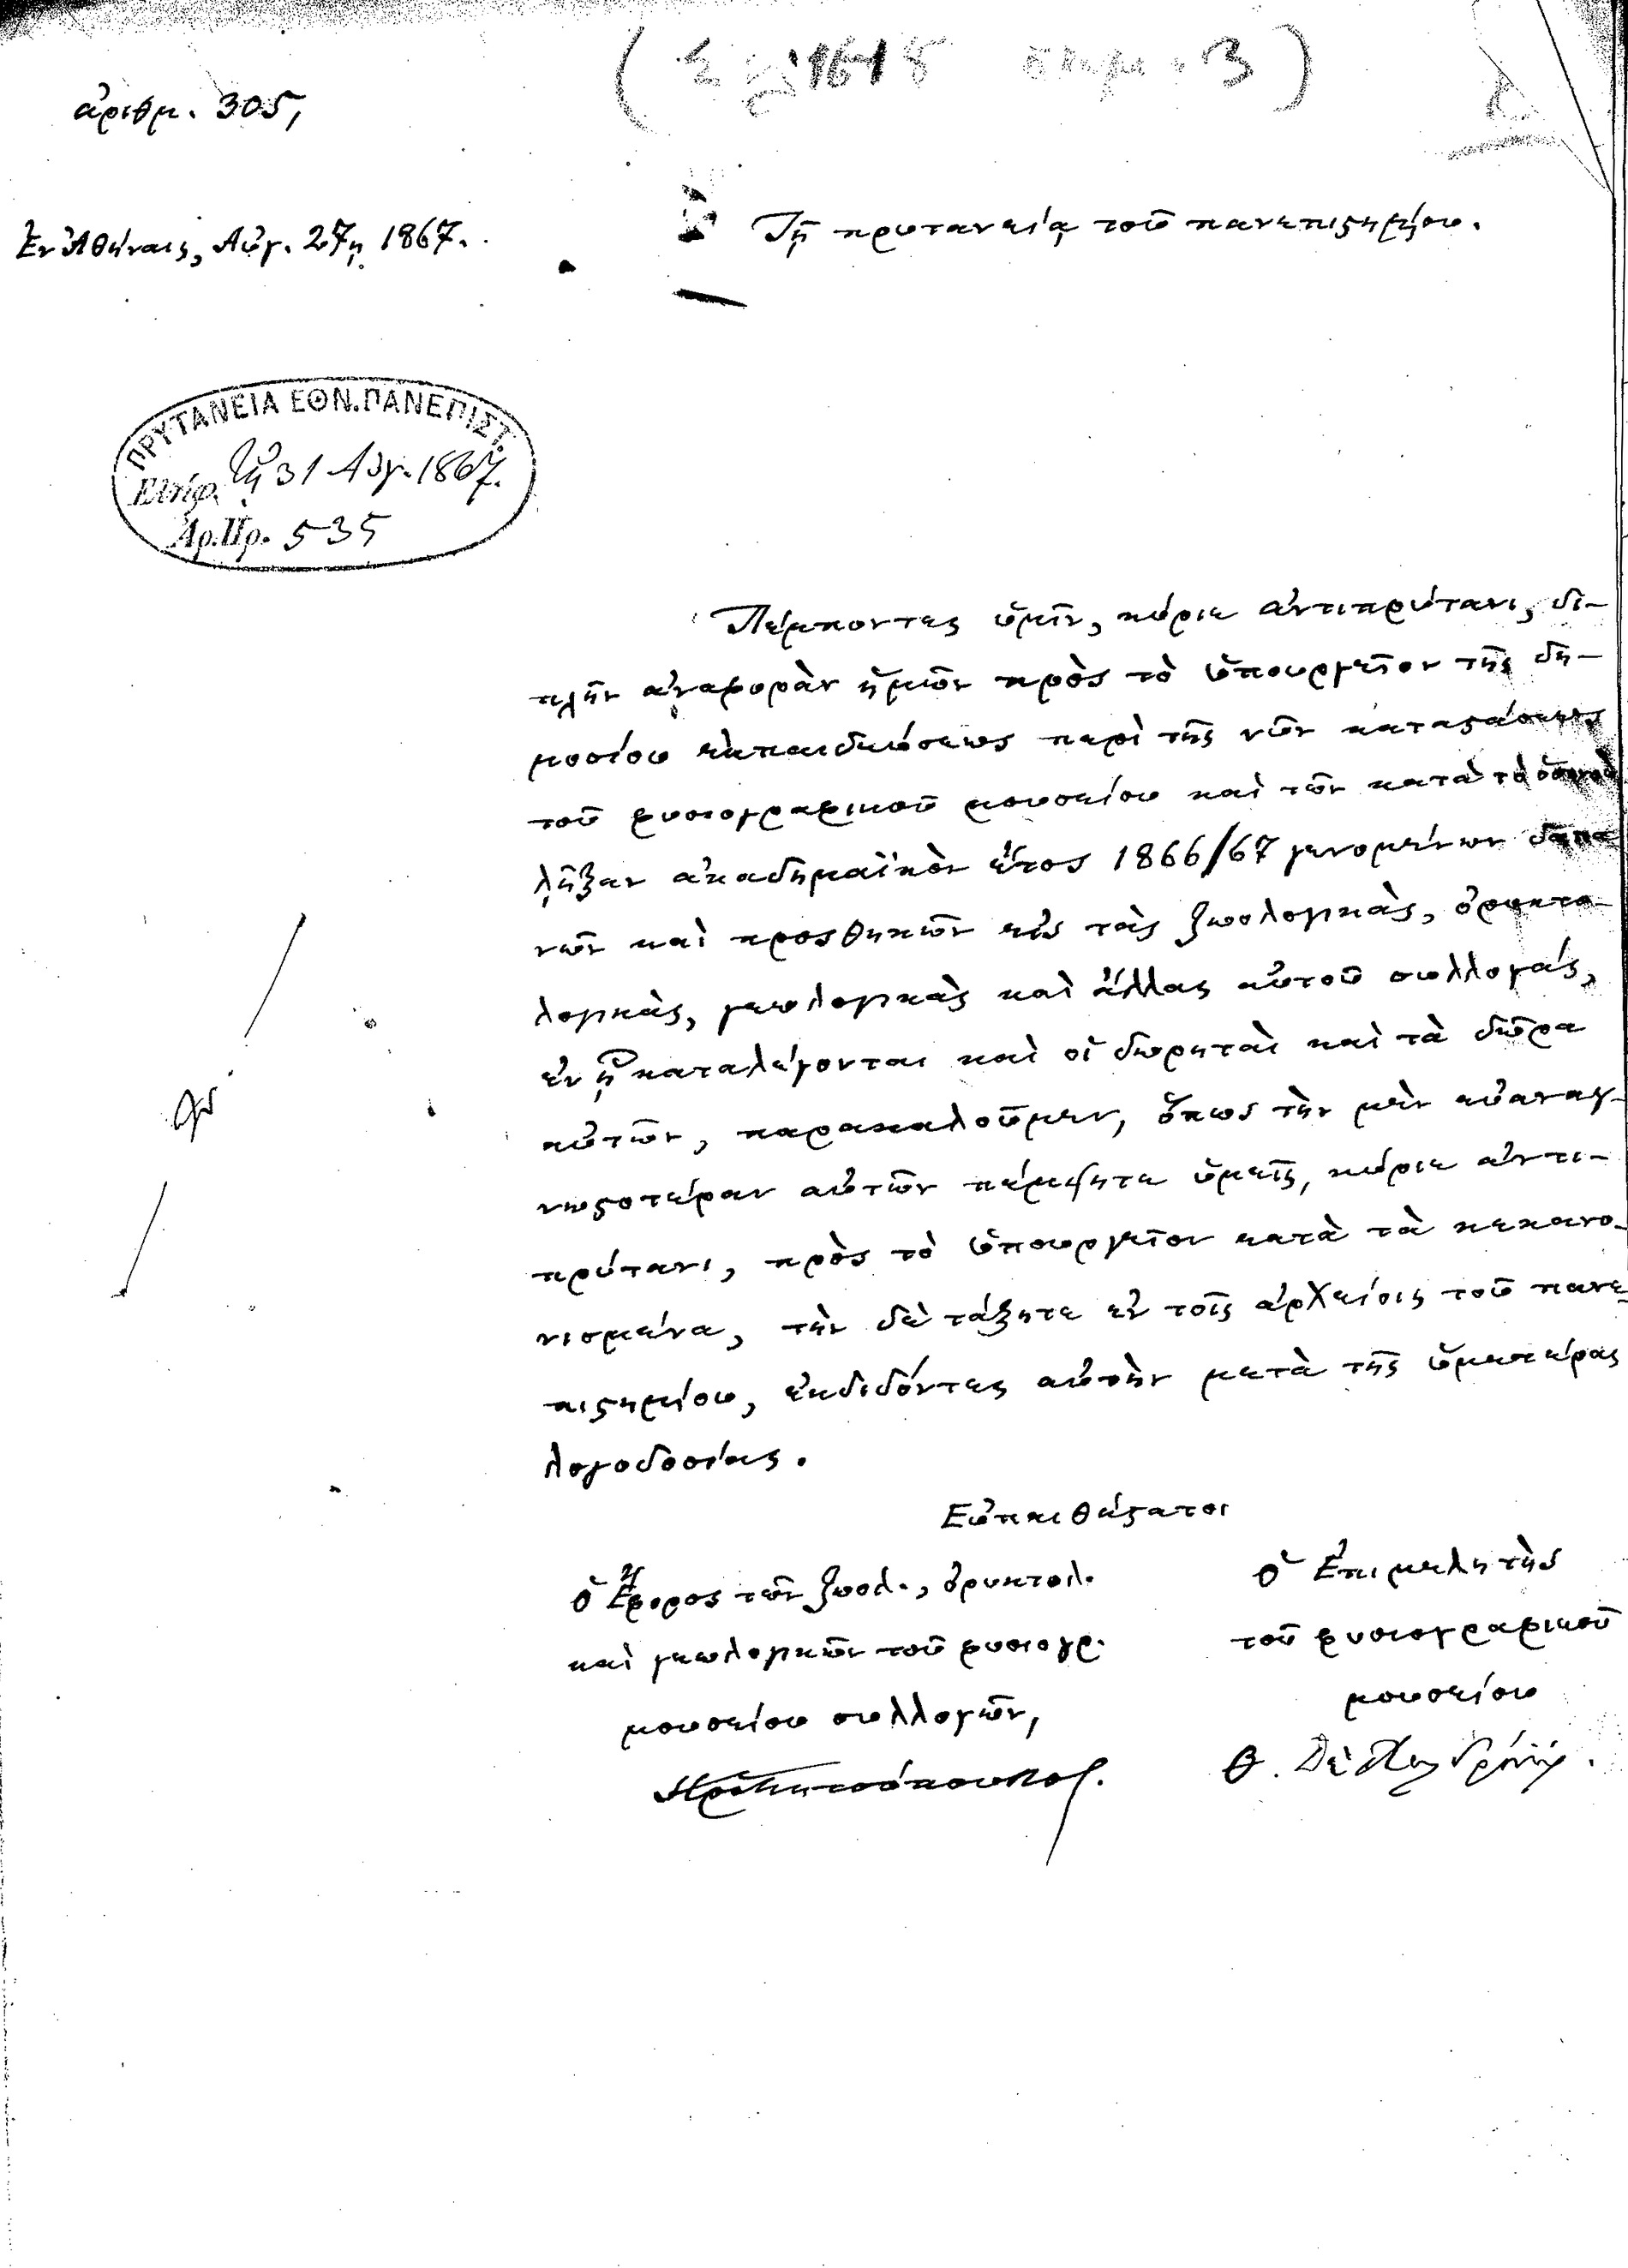 ἀριθμ. 305,
Ἐν Ἀθήναις, Αὐγ. 27ῃ 1867.
Τῇ πρυτανείᾳ τοῦ πανεπιςημίου.
ΠΡΥΤΑΝΕΙΑ ΕΘΝ. ΠΑΝΕΠΙΣΤ.
τῇ 31 Αὐγ. 1867.
Ἀρ. Πρ. 535
Πέμποντες ὑμῖν, κύριε ἀντιπρύτανι, δι-
πλῆν ἀναφορὰν ἡμῶν πρὸς τὸ ὑπουργεῖον τῆς δη-
μοσίου ἐκπαιδεύσεως περὶ τῆς νῦν καταςάσεως
τοῦ φυσιογραφικοῦ μουσείου καὶ τῶν κατὰ τὸ
λῆξαν ἀκαδημαϊκὸν ἔτος 1866/67 γενομένων δαπα
νῶν καὶ προσθηκῶν εἰς τὰς ζωολογικὰς, ὀρυκτο-
λογικὰς, γεωλογικὰς καὶ ἄλλας αὐτοῦ συλλογάς,
ἐν ᾗ καταλέγονται καὶ οἱ δωρηταὶ καὶ τὰ δῶρα
αὐτῶν, παρακαλοῦμεν, ὅπως τὴν μὲν εὐαναγ-
νωςοτέραν αὐτῶν πέμψητε ὑμεῖς, κύριε ἀντι-
πρύτανι, πρὸς τὸ ὑπουργεῖον κατὰ τὰ κεκανο-
νισμένα, τὴν δὲ τάξητε ἐν τοῖς ἀρχείοις τοῦ πανε-
πιςημίου, ἐκδιδόντες αὐτὴν μετὰ τῆς ὑμετέρας
λογοδοσίας.
Εὐπειθέςατοι
ὁ Ἔφορος τῶν ζωολ., ὀρυκτολ.
καὶ γεωλογικῶν τοῦ φυσιογρ.
μουσείου συλλογῶν,
ὁ Ἐπιμελητὴς
τοῦ φυσιογραφικοῦ
μουσείου
Θ.